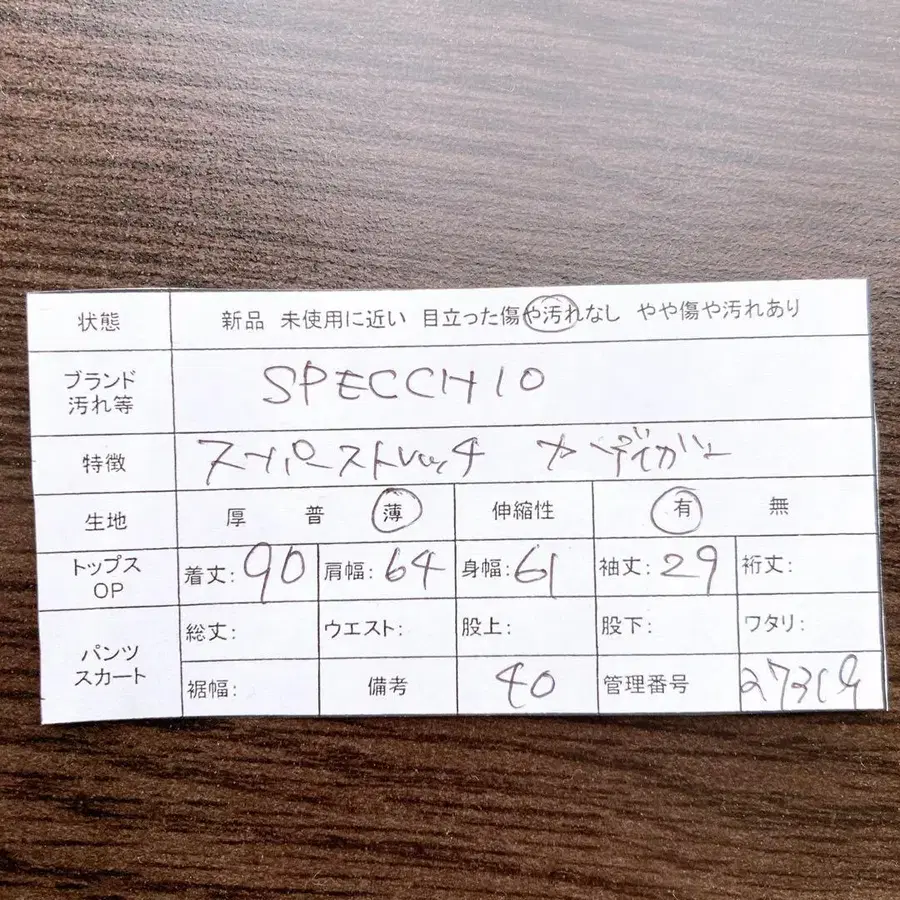 状態 新品 未使用に近い 目立った傷や汚れなし やや傷や汚れあり
ブランド
汚れ等 SPECCHIO
特徴 スーパーストレッチ カーディガン
生地 厚 普 薄 伸縮性 有 無
トップス
OP 着丈:90 肩幅:64 身幅:61 袖丈:29 裄丈:
パンツ
スカート 総丈: ウエスト: 股上: 股下: ワタリ:
裾幅: 備考 40 管理番号 27319